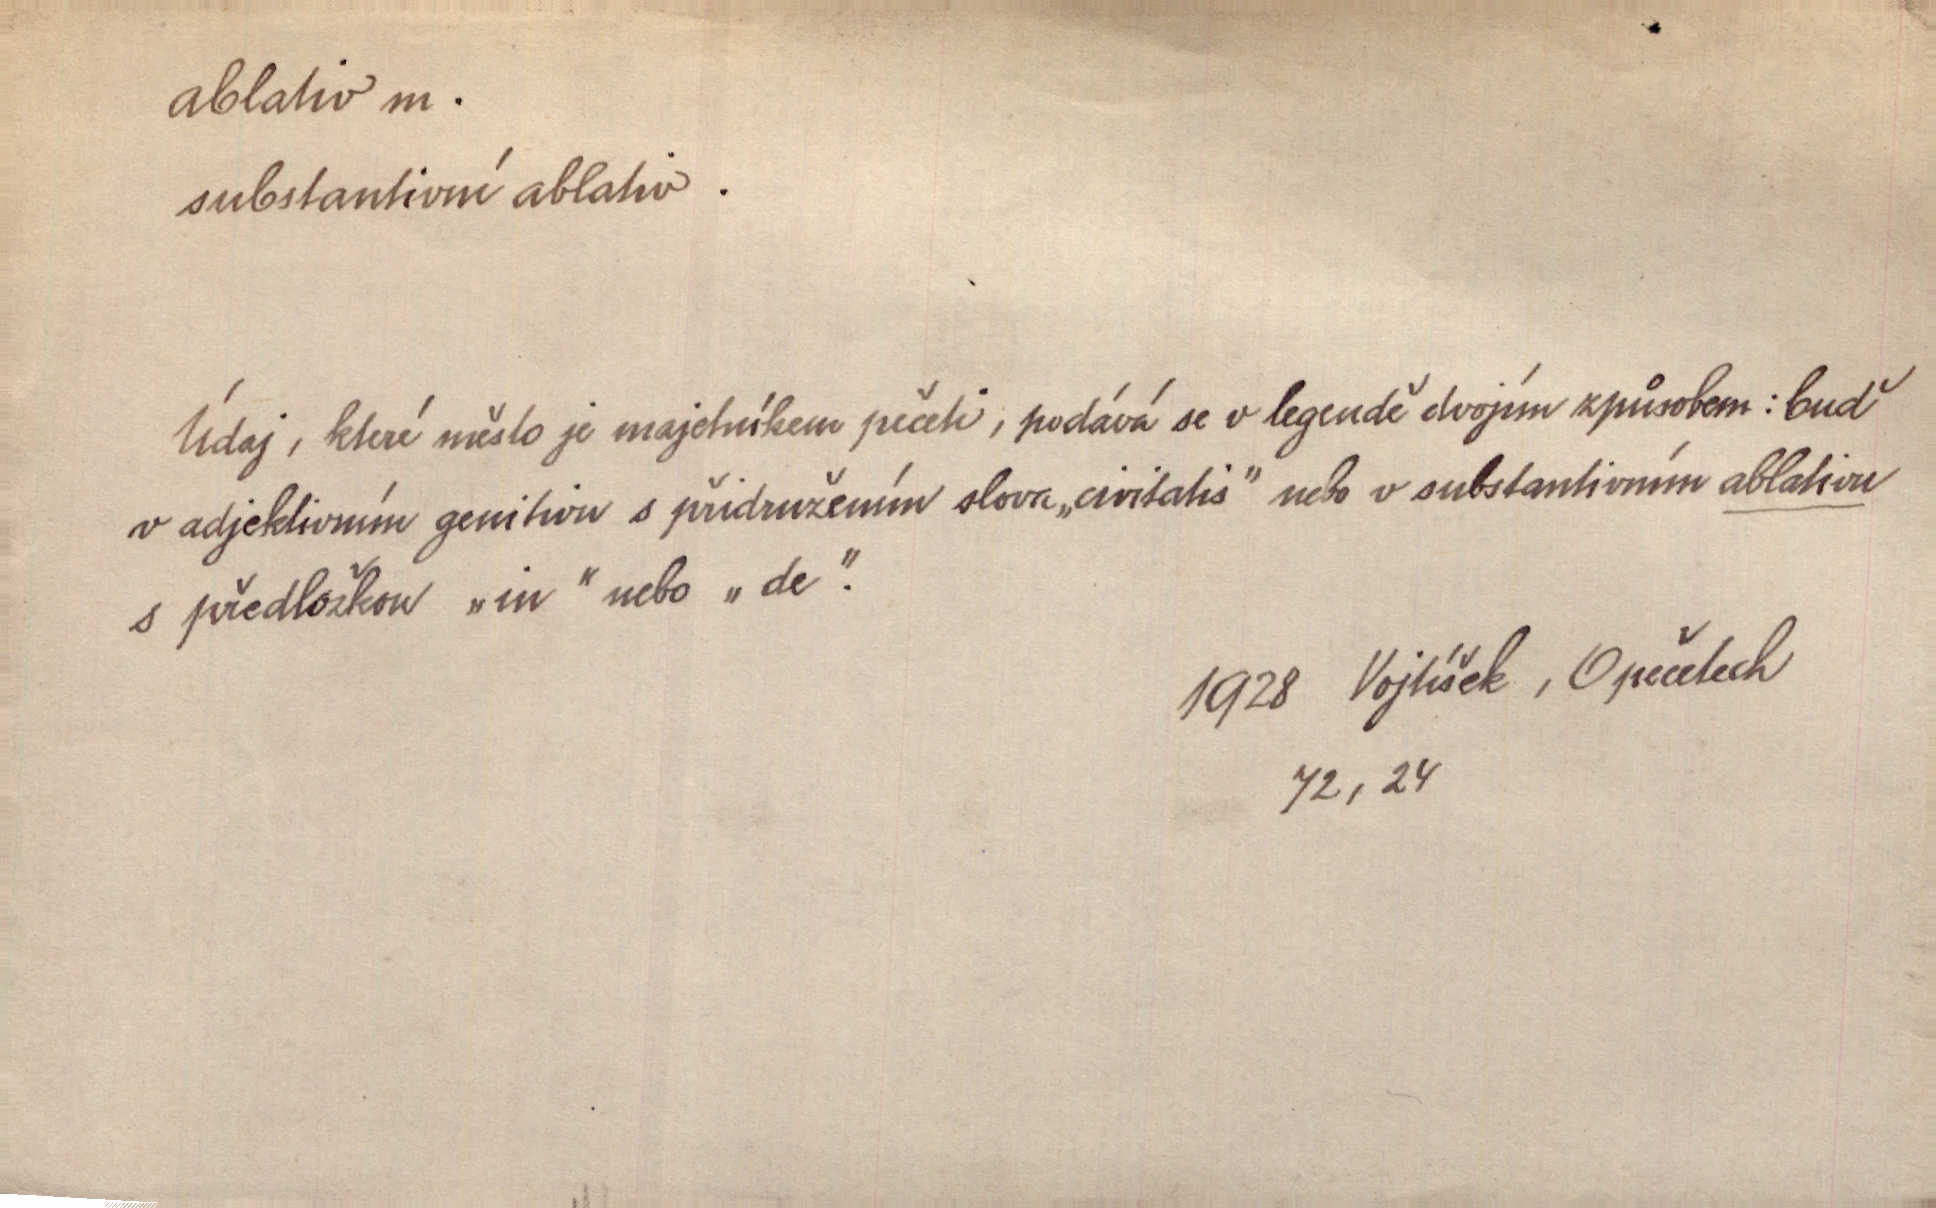 ablativ m.
substantivní ablativ.
Údaj, které město je majetníkem pečeti, podává se v legendě dvojím způsobem: buď
v adjektivním genitivu s přidružením slova „civitatis" nebo v substantivním ablativu
s předložkou „in" nebo „de".
1928 Vojtíšek, O pečetech
72, 24